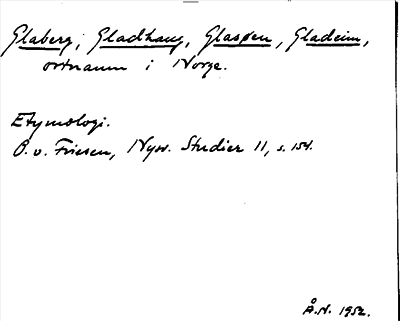 Glaberg, Gladhaug, Glasøen, Gladeim,
ortnamn i Norge.
Etymologi.
O. v. Friesen, Nysv. Studier 11, s. 154.
Å. N. 1952.